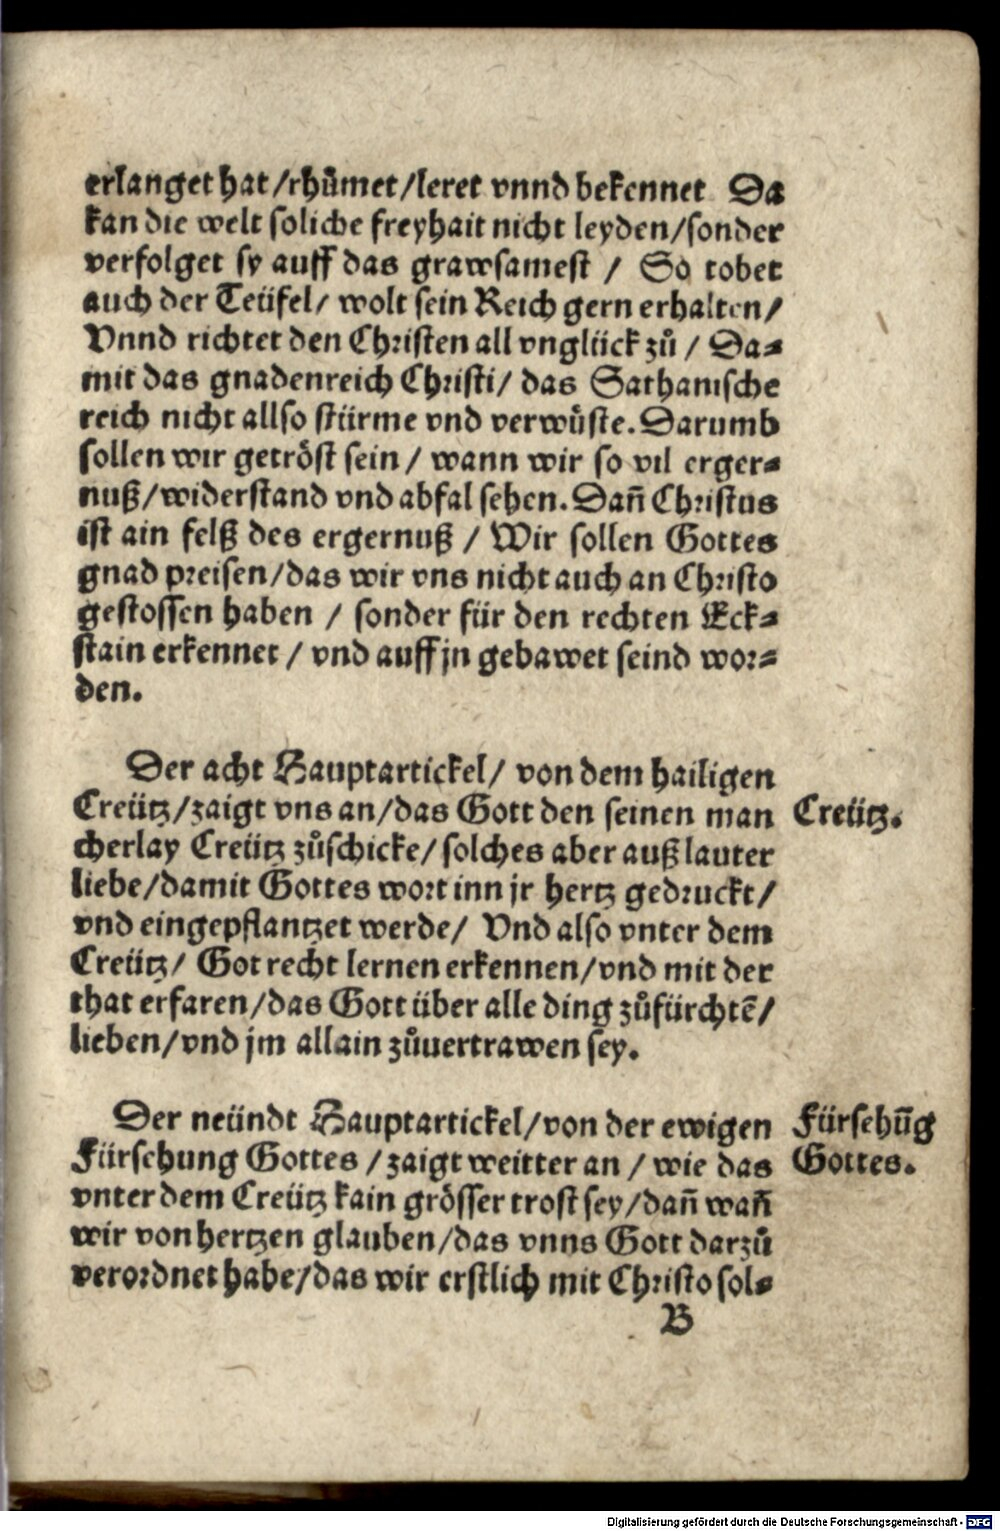 erlanget hat /rhůmet/leret vnnd bekennet Da
kan die welt soliche freyhait nicht leyden/sonder
verfolget sy auff das grawsamest / So tobet
auch der Teüfel/ wolt sein Reich gern erhalten/
Vnnd richtet den Christen all vnglück zů / Da-
mit das gnadenreich Christi/ das Sathanische
reich nicht allso stürme vnd verwůste. Darumb
sollen wir getröst sein / wann wir so vil erger-
nuß/widerstand vnd abfal sehen. Dañ Christus
ist ain felß des ergernuß / Wir sollen Gottes
gnad preisen/das wir vns nicht auch an Christo
gestossen haben / sonder für den rechten Eck-
stain erkennet / vnd auff jn gebawet seind wor-
den.
Der acht Hauptartickel/ von dem hailigen
Creütz/zaigt vns an/das Gott den seinen man
Creütz.
cherlay Creütz zůschicke/ solches aber auß lauter
liebe/damit Gottes wort inn jr hertz gedruckt/
vnd eingepflantzet werde/ Vnd also vnter dem
Creütz/ Got recht lernen erkennen/vnd mit der
that erfaren/das Gott über alle ding zůfürchtē/
lieben/vnd jm allain zůuertrawen sey.
Der neündt Hauptartickel/von der ewigen
Fürsehūg
Fürsehung Gottes /zaigt weitter an / wie das
Gottes.
vnter dem Creütz kain grösser trost sey/dañ wañ
wir von hertzen glauben/das vnns Gott darzů
verordnet habe/das wir erstlich mit Christo sol-
B
Digitalisierung gefördert durch die Deutsche Forschungsgemeinschaft - DFG